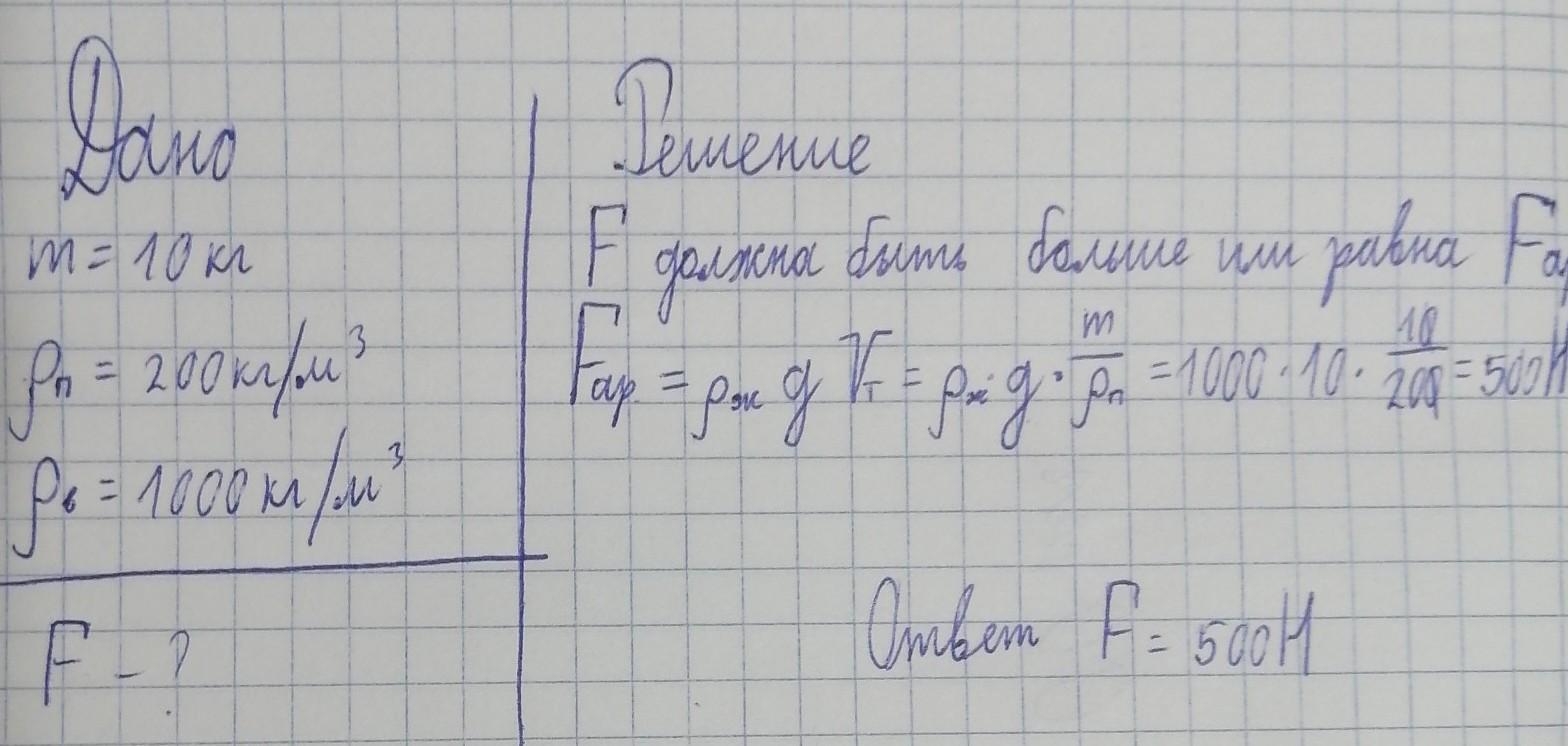 Дано
m = 10 кг
ρп = 200 кг/м³
ρв = 1000 кг/м³
F - ?
Решение
F должна быть больше или равна Fар
Fар = ρж g Vт = ρж · g · m/ρп = 1000 · 10 · 10/200 = 500 Н
Ответ F = 500 Н